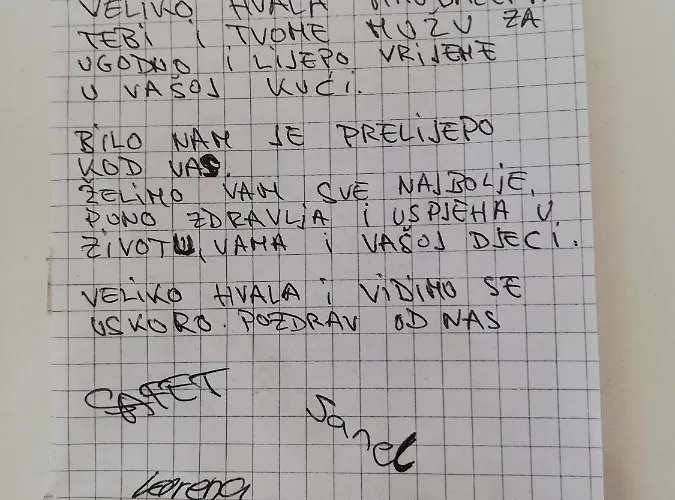 VELIKO HVALA
TEBI I TVOME MUŽU ZA
UGODNO I LIJEPO VRIJEME
U VAŠOJ KUĆI.
BILO NAM JE PRELIJEPO
KOD VAS.
ŽELIMO VAM SVE NAJBOLJE,
PUNO ZDRAVLJA I USPJEHA U
ŽIVOTU, VAMA I VAŠOJ DJECI.
VELIKO HVALA I VIDIMO SE
USKORO. POZDRAV OD NAS
SAFET
Sanel